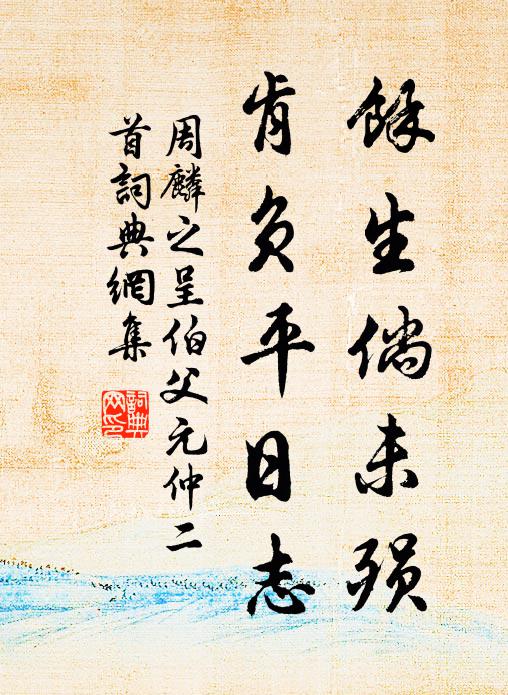 餘生倘未殞
肯負平日志
周麟之呈伯父元仲二
首詞典網集
詞典網印